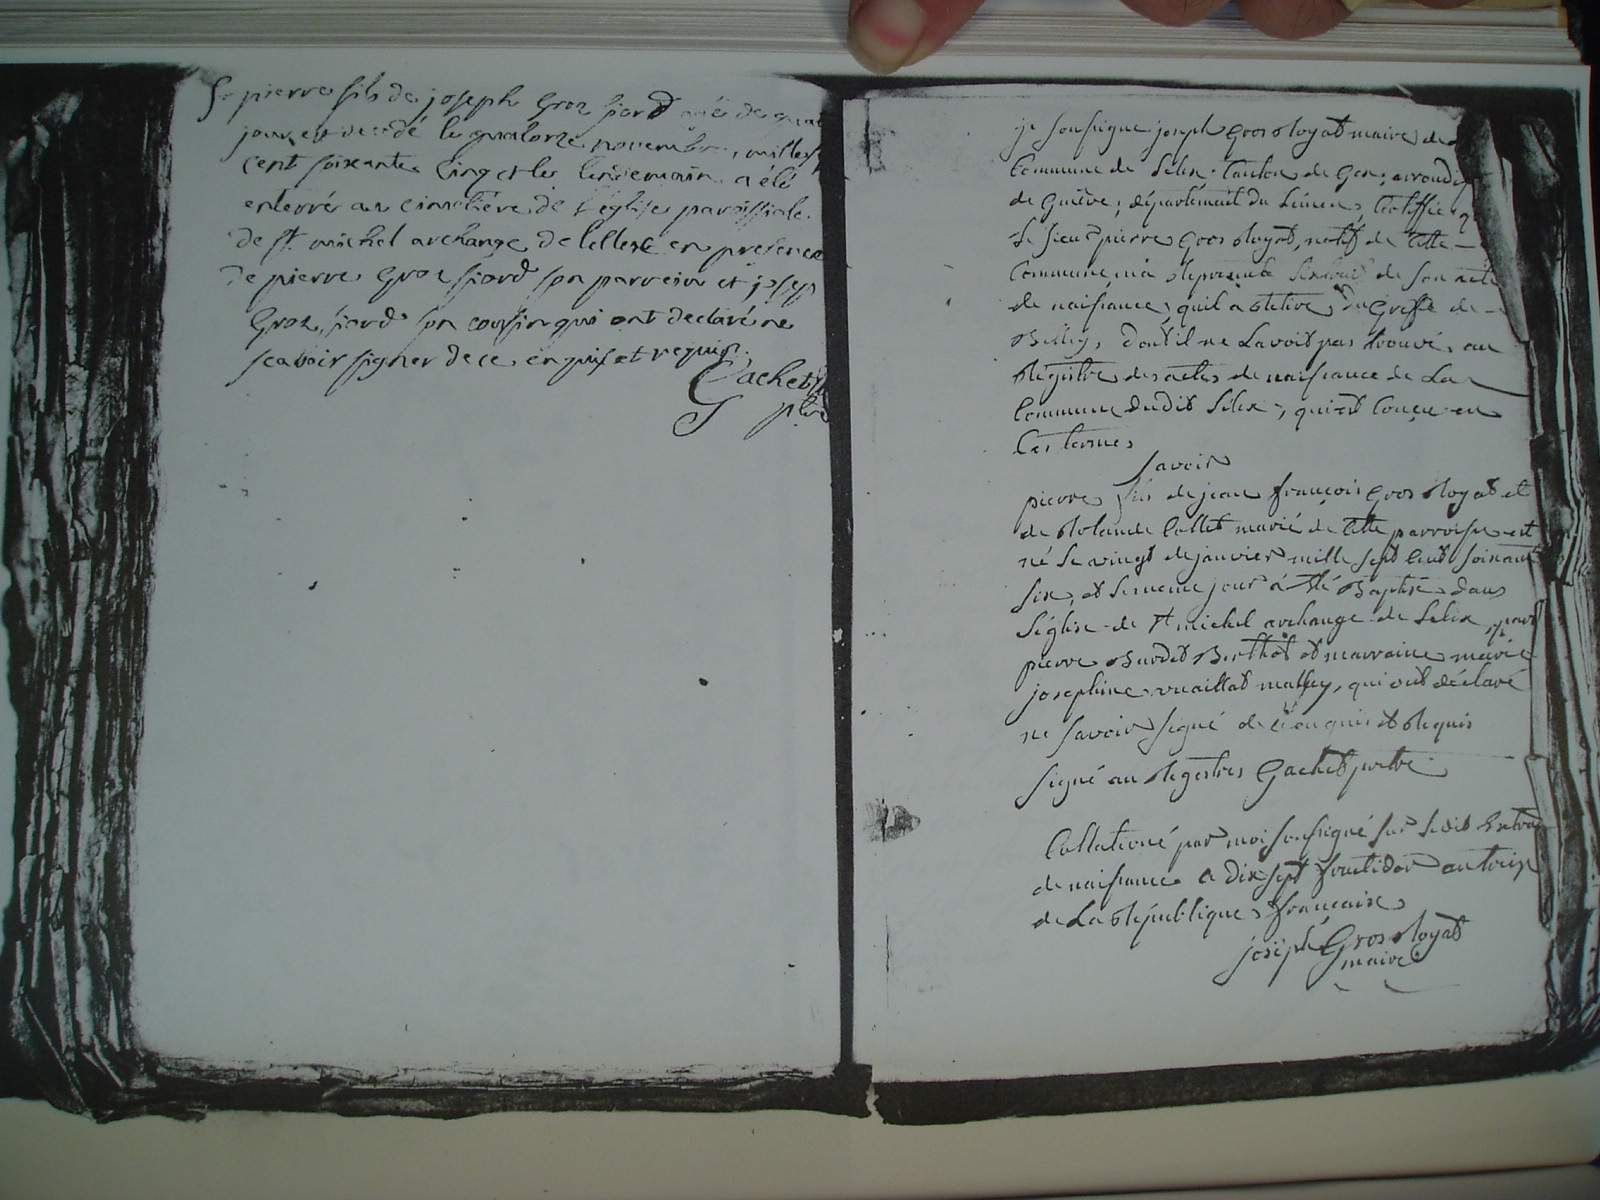 pierre fils de joseph Groz jord agé de quat
jour est decedé le quatorze novembre, mille s
cent soixante cinq et le lendemain a été
enterré au cimetière de l'église paroissiale
de st michel archange de lellex en presence
de pierre Groz jord son parrein et josep
Groz jord son cousin qui ont declaré ne
scavoir signer de ce enquis et requis.
Gachet
ptre
je soussigne joseph Gros Royat maire de
Commune de Lelex, Canton de Gex, arrondis
de Genève, département du Leman, Certiffie q
Le Sieur pierre Gros Royat, natif de Cette
Commune, m'a Représenté Lextrait de Son acte
de naissance, qu'il a Retiré du Greffe de
Belley, dont il ne Lavoit pas trouvé au
Régistre des actes de naissance de La
Commune dudit Lelex, qui est Conçu en
Ces termes
Savoir
pierre fils de jean françois Gros Royat et
de Rolande Collet marié de Cette parroisse est
né Le vingt de janvier mille Sept Cent Soixante
Six, et Le meme jour à été Baptisé dans
L'église de st michel archange de Lelex, par
pierre Burdet Berthet et marraine marie
josephine vuaillat mathey, qui ont déclaré
ne Savoir Signé de ce enquis et Requis
Signé au Régestres Gachet pretre
Collationné par moi Soussigné Sur Ledit Extrai
de naissance a Dix Sept fructidor an treize
de La République française
joseph Gros Royat
maire